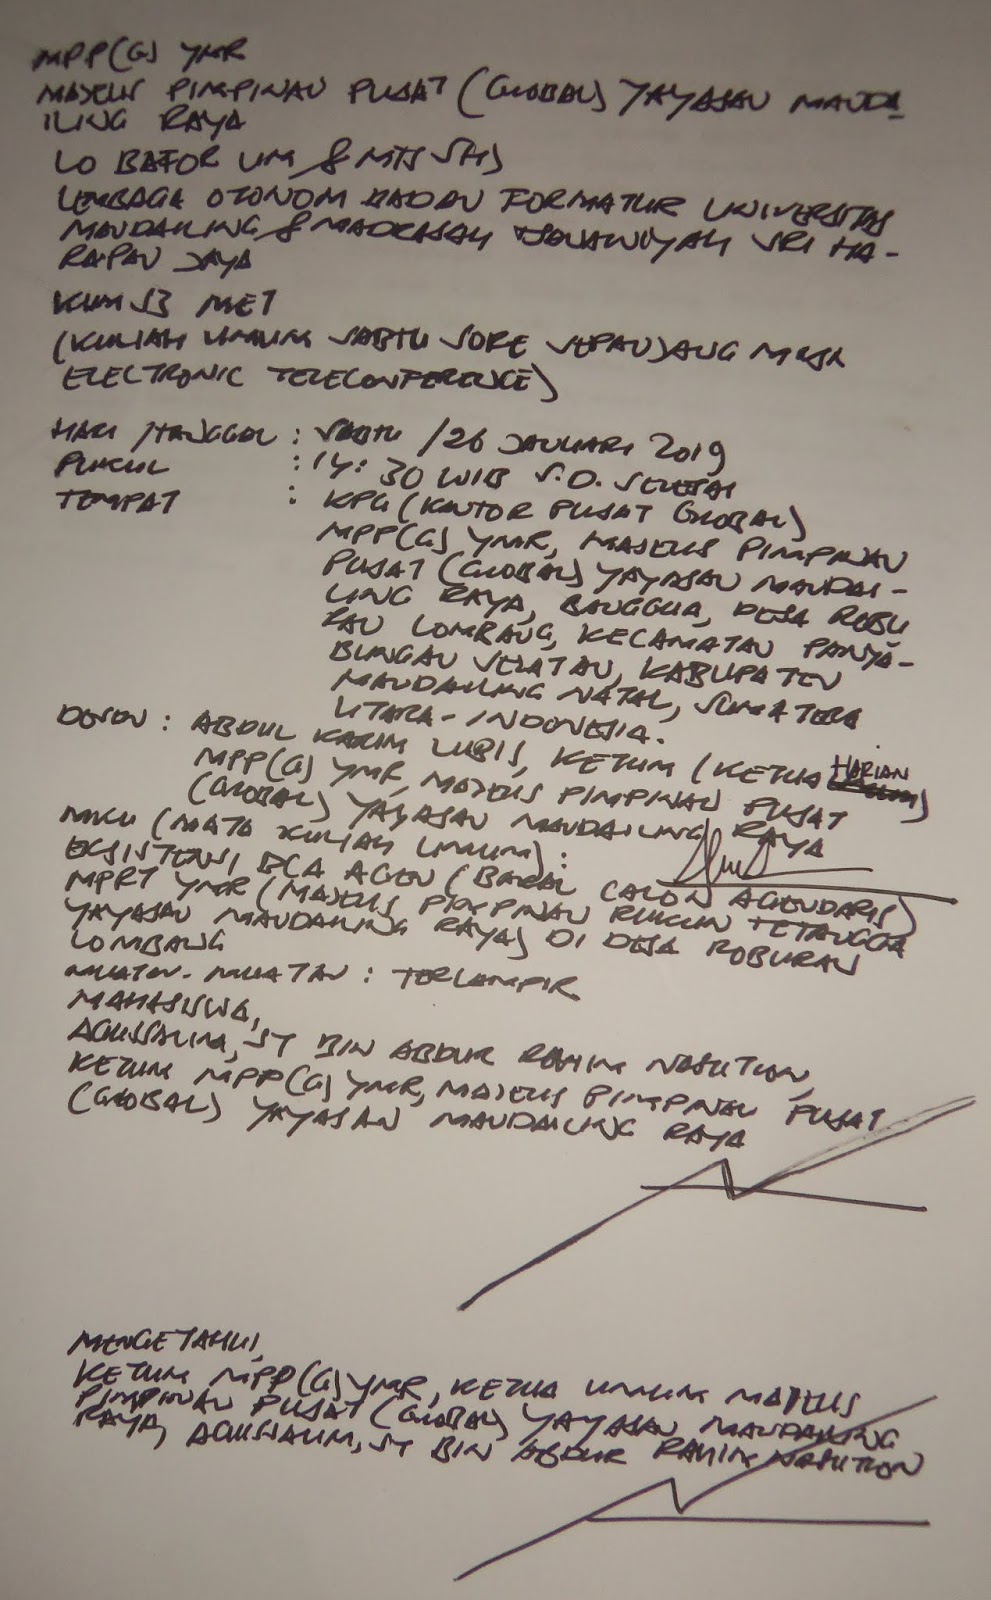 MPP(G) YMR
MAJELIS PIMPINAN PUSAT (GLOBAL) YAYASAN MANDA
ILING RAYA
LO BAFOR UM & MTS SHJ
LEMBAGA OTONOM BADAN FORMATUR UNIVERSITAS
MANDAILING & MADRASAH TSANAWIYAH SRI HA-
RAPAN JAYA
KUM S3 MET
(KULIAH UMUM SABTU SORE SEPANJANG MASA
ELECTRONIC TELECONFERENCE)
HARI /TANGGAL : SABTU /26 JANUARI 2019
PUKUL : 14:30 WIB S.D. SELESAI
TEMPAT : KPG (KANTOR PUSAT GLOBAL)
MPP(G) YMR, MAJELIS PIMPINAN
PUSAT (GLOBAL) YAYASAN MANDAI-
LING RAYA, BANGGUA, DESA ROBU
RAN LOMBANG, KECAMATAN PANYA-
BUNGAN SELATAN, KABUPATEN
MANDAILING NATAL, SUMATERA
UTARA-INDONESIA.
DOSEN : ABDUL KARIM LUBIS, KETUM (KETUA HARIAN)
MPP(G) YMR, MAJELIS PIMPINAN PUSAT
(GLOBAL) YAYASAN MANDAILING RAYA
MKU (MATA KULIAH UMUM) :
EKSISTENSI BCA AGEN (BAKAL CALON AGENDARIS)
MPRT YMR (MAJELIS PIMPINAN RUKUN TETANGGA
YAYASAN MANDAILING RAYA) DI DESA ROBURAN
LOMBANG
MUATAN-MUATAN : TERLAMPIR
MAHASISWA,
AGUSSALIM, ST BIN ABDUR ROHIM NASUTION,
KETUM MPP(G) YMR, MAJELIS PIMPINAN PUSAT
(GLOBAL) YAYASAN MANDAILING RAYA
MENGETAHUI,
KETUM MPP(G) YMR, KETUA UMUM MAJELIS
PIMPINAN PUSAT (GLOBAL) YAYASAN MANDAILING
RAYA, AGUSSALIM, ST BIN ABDUR RAHIM NASUTION